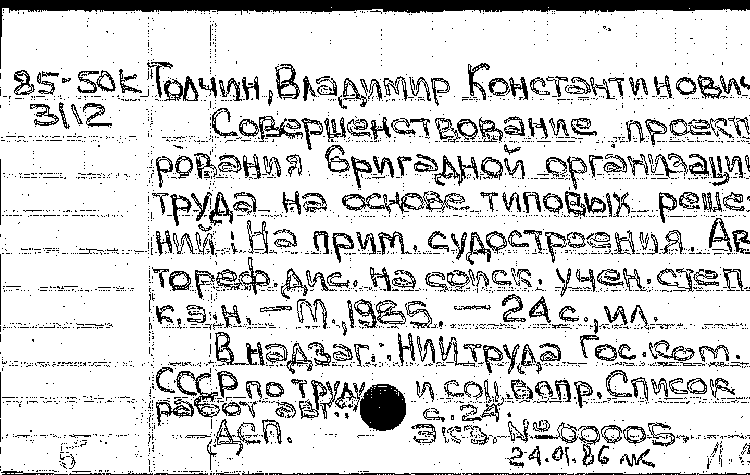 85-50К Толчин, Владимир Константинович
3112
Совершенствование проект
рования бригадной организации
труда на основе типовых реше-
ний: На прим. судостроения. Ав
тореф. дис. на соиск. учен. степ
к.э.н. — М., 1985. — 24 с., ил.
В надзаг.: НИИ труда Гос. ком.
СССР по труду и соц. вопр. Список
работ авт.: с. 24.
ДСП. Экз. № 00005.
24.01.86
5